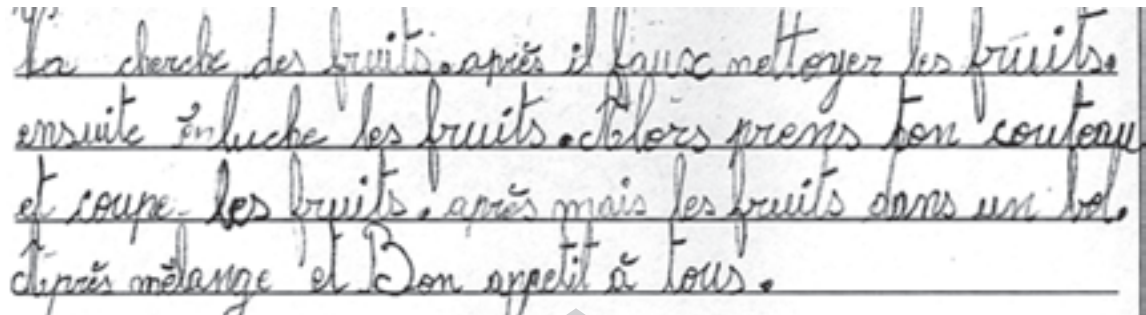 Va cherche des fruits. après il faux nettoyer les fruits.
ensuite én luche les fruits. Alors prens ton couteau
et coupe les fruits. après mais les fruits dans un bol.
Après mélange et Bon appetit à tous.